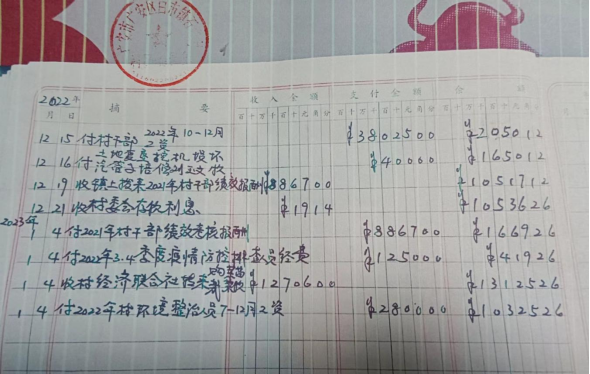 广安市广安区吕市镇
2022年
月 日 摘 要 收入金额 支付金额 余 额
百十万千百十元角分 百十万千百十元角分 百十万千百十元角分
12 15 付村干部2022年10-12月工资 ¥3802500 ¥205012
12 16 付 ¥40000 ¥165012
12 19 收镇上拨来2021年村干部绩效报酬 ¥886700 ¥1051712
12 21 收村委会存款利息 ¥1914 ¥1053626
2023年
1 4 付2021年村干部绩效考核报酬 ¥886700 ¥166926
1 4 付2022年3.4季度疫情防控排查员经费 ¥125000 ¥41926
1 4 收村经济联合社转来 ¥1270600 ¥1312526
1 4 付2022年村环境整治员7-12月工资 ¥280000 ¥1032526